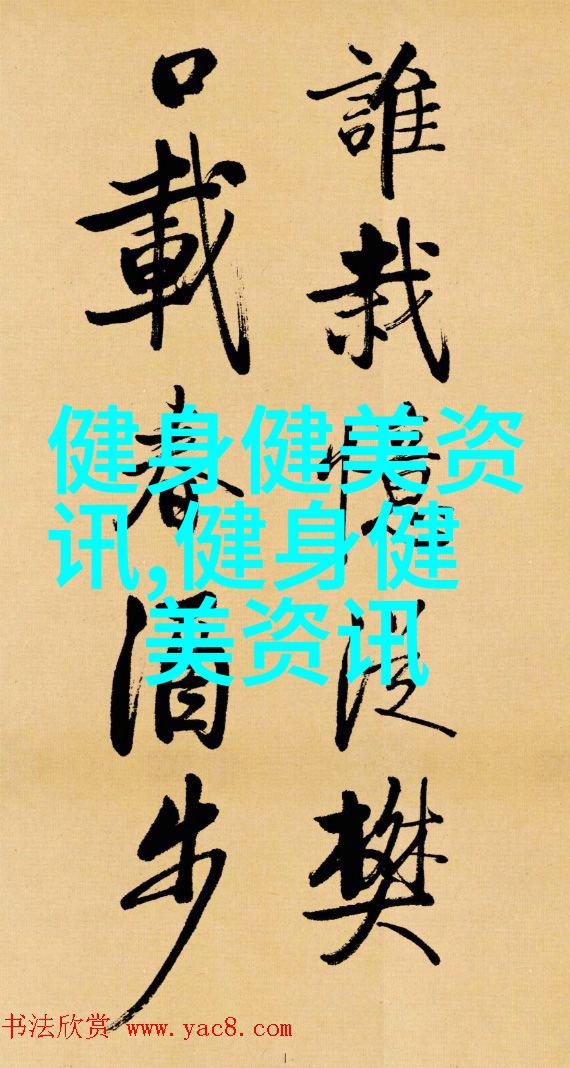 誰栽樊
口載春酒步
健身健美资
讯,健身健
美资讯
书法欣赏 www.yac8.com